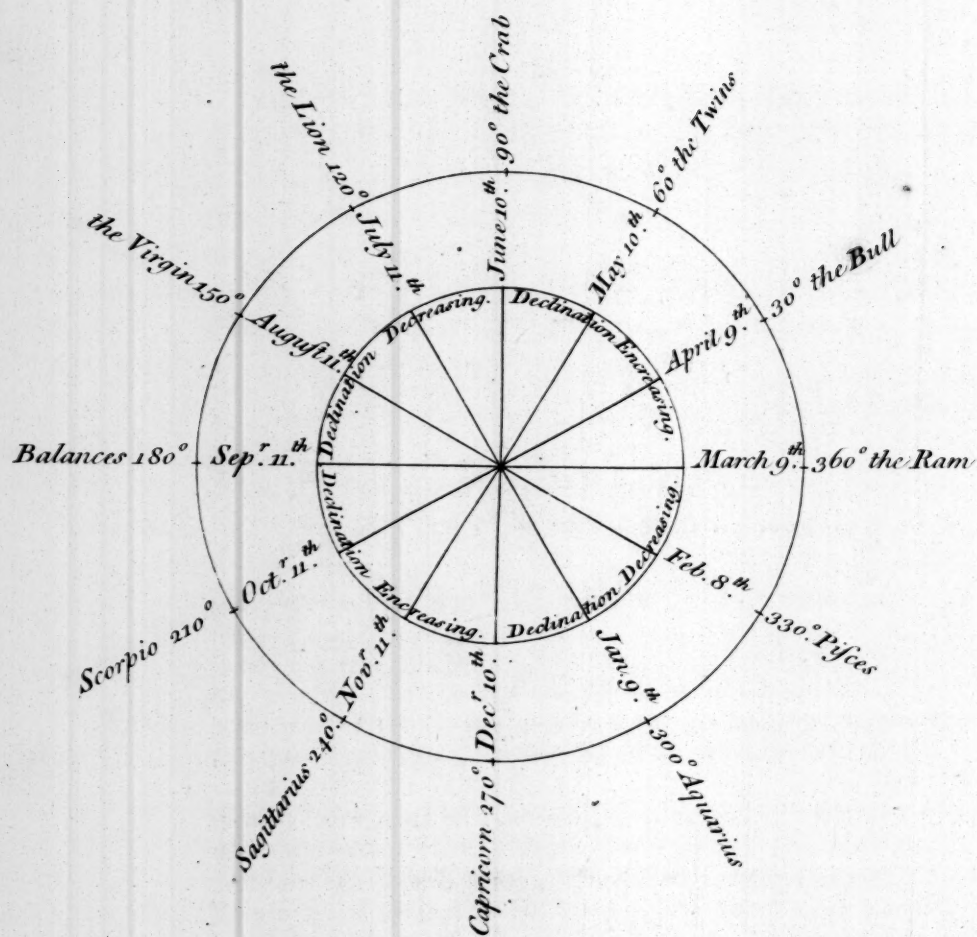 March 9.th 360° the Ram
April 9.th 30° the Bull
May 10.th 60° the Twins
June 10.th 90° the Crab
the Lion 120° July 11.th
the Virgin 150° August 11.th
Balances 180° Sep.r 11.th
Scorpio 210° Oct.r 11.th
Sagittarius 240° Nov.r 11.th
Capricorn 270° Dec.r 10.th
Jan. 9.th 300° Aquarius
Feb. 8.th 330° Piſces
Declination Encreasing.
Declination Decreasing.
Declination Encreasing.
Declination Decreasing.